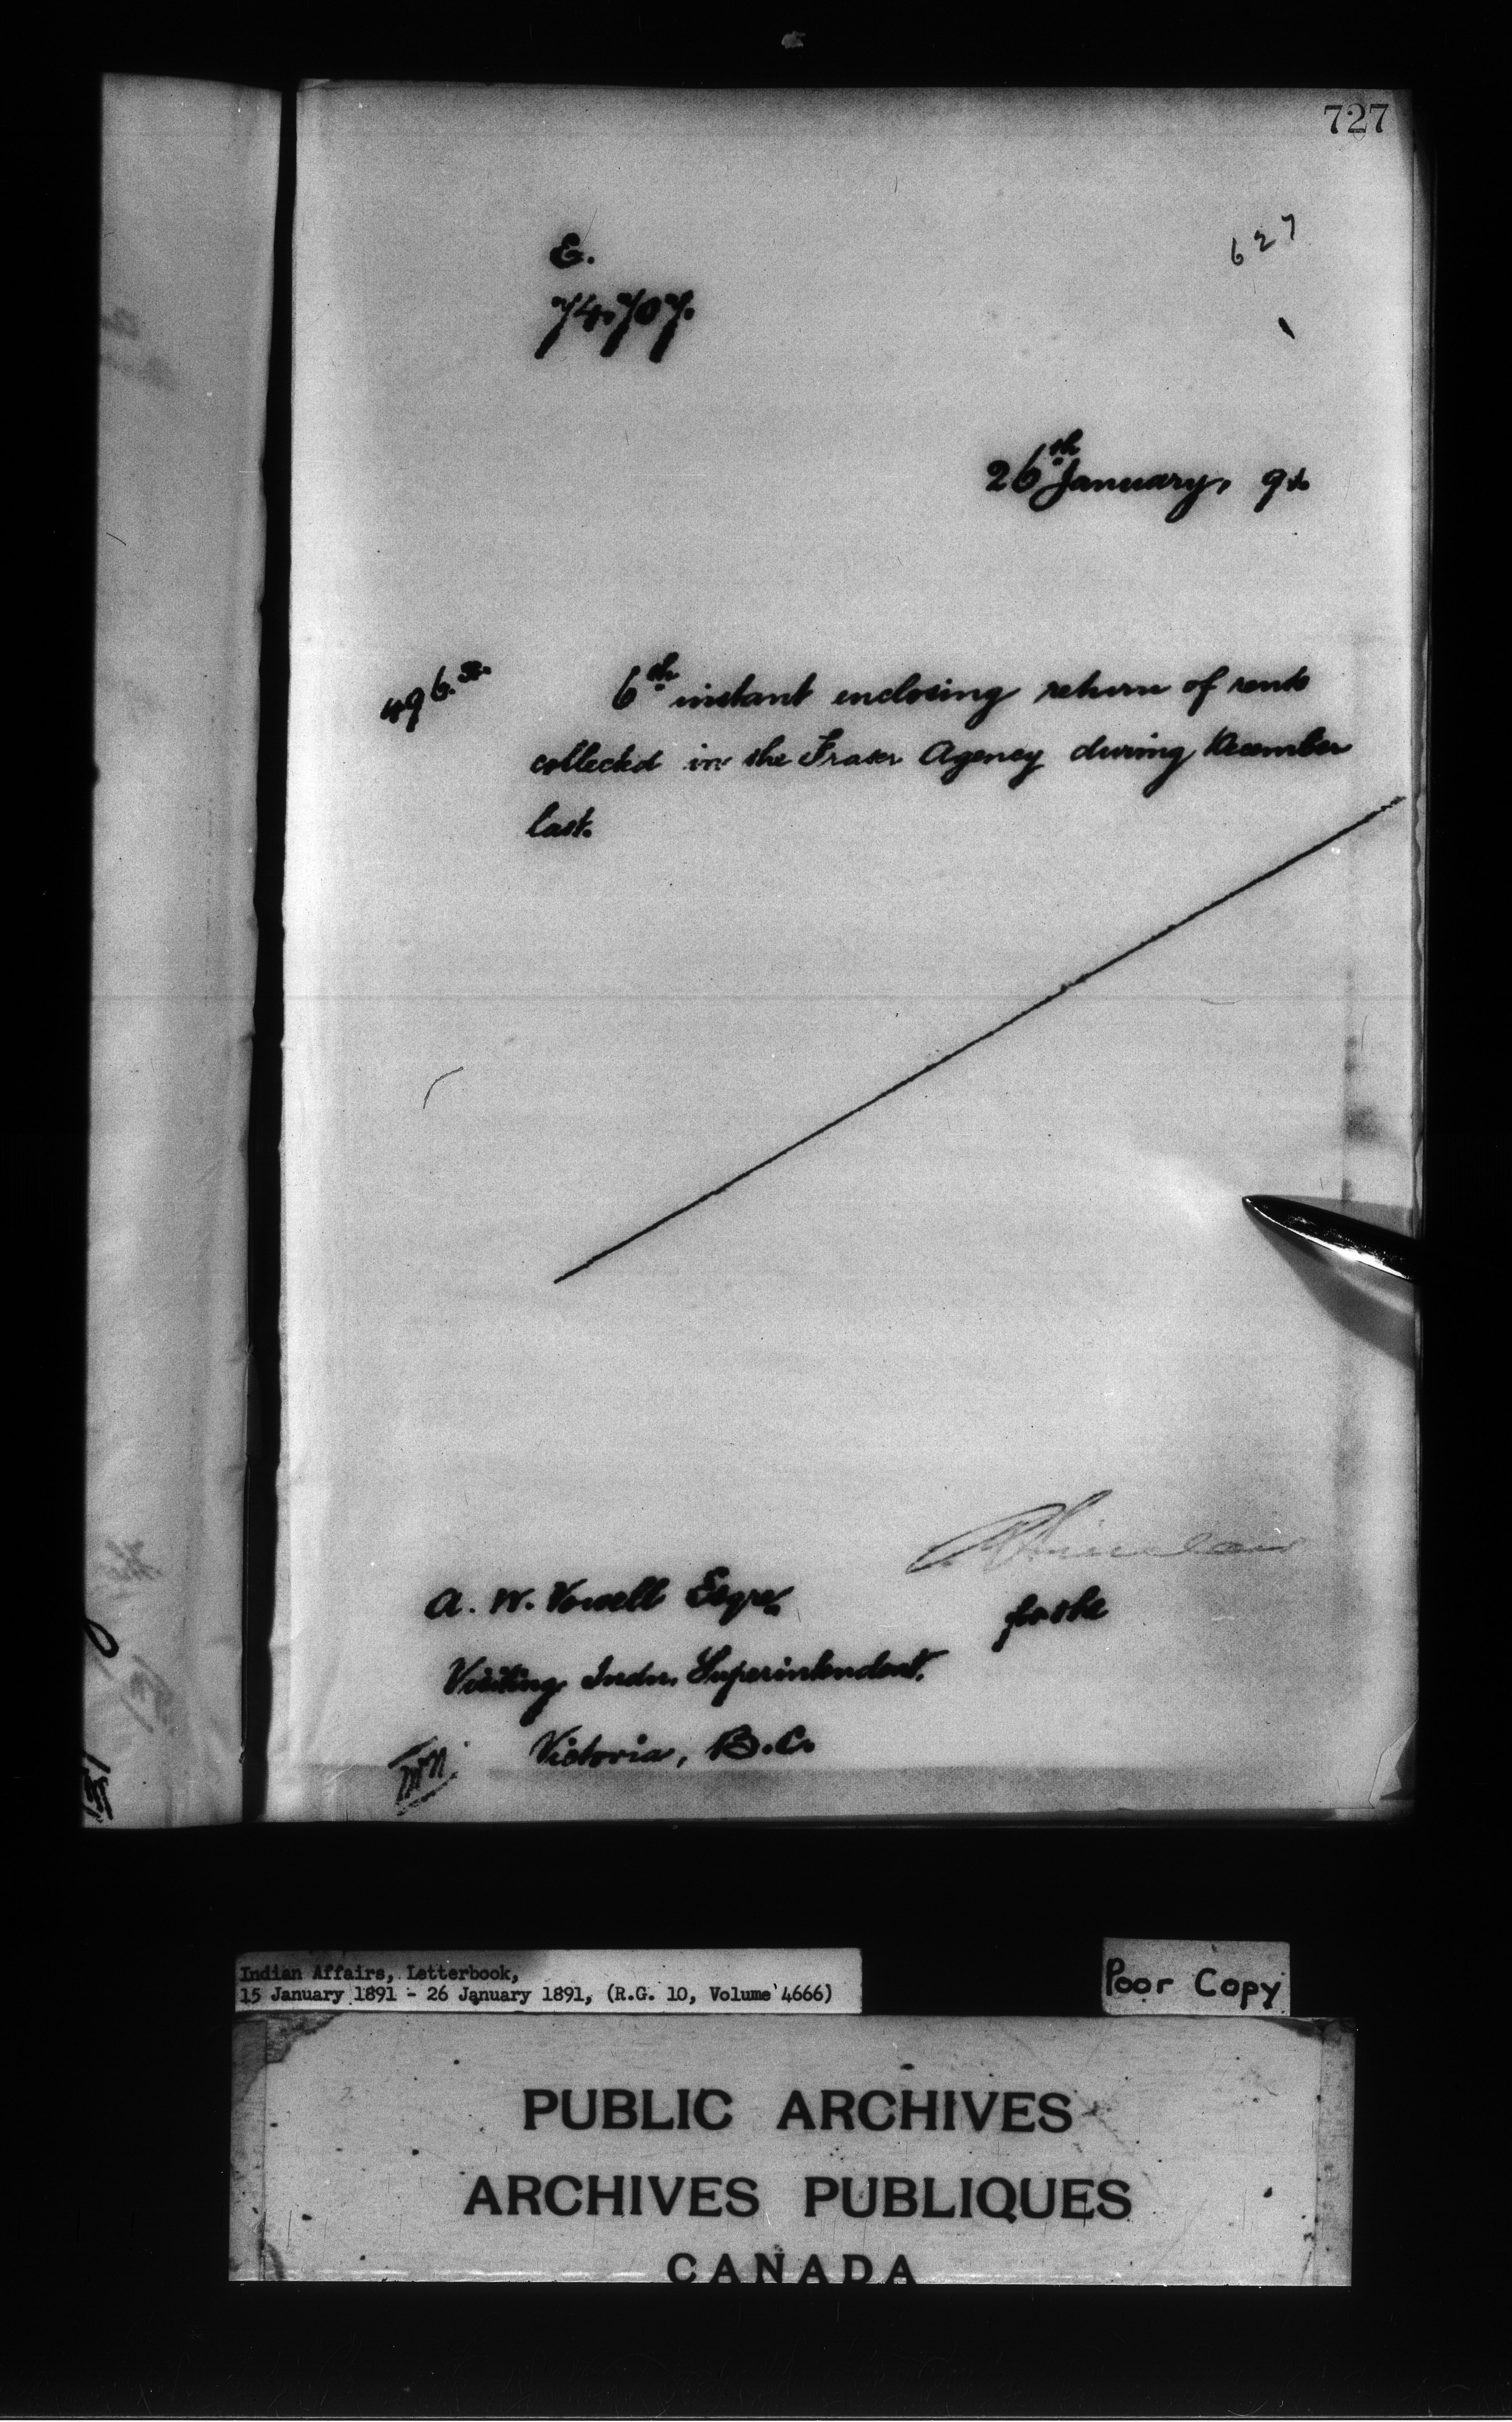 727
627
E.
74.707.
26th January, 91.
496.
6th instant enclosing return of rents
collected in the Fraser Agency during December
last.
A. W. Vowell Esqre.
for the
Visiting Indn. Superintendent.
Victoria, B.C.
Indian Affairs, Letterbook,
15 January 1891 - 26 January 1891, (R.G. 10, Volume 4666)
Poor Copy
PUBLIC ARCHIVES
ARCHIVES PUBLIQUES
CANADA